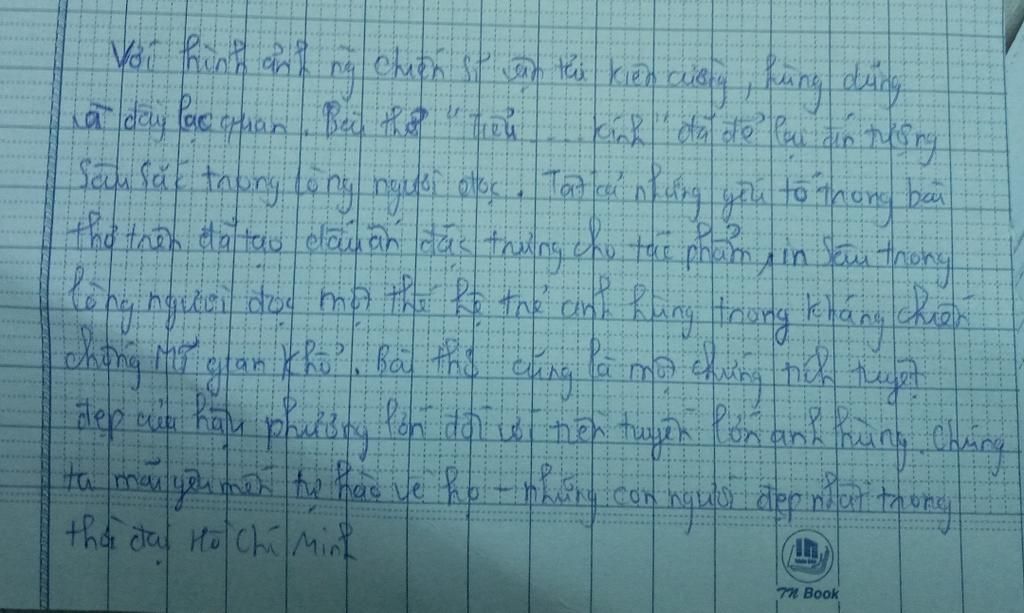 Với hình ảnh ng chiến sĩ vận tải kiên cường, hùng dũng
và đầy lạc quan. Bài thơ "Tiểu ... kính" đã để lại ấn tượng
sâu sắc trong lòng người đọc. Tất cả những yếu tố trong bài
thơ trên đã tạo dấu ấn đặc trưng cho tác phẩm, in sâu trong
lòng người đọc một thế hệ trẻ anh hùng trong kháng chiến
chống Mỹ gian khổ. Bài thơ cũng là một chứng tích tuyệt
đẹp của hậu phương lớn đối với tiền tuyến lớn anh hùng. Chúng
ta mãi yêu mến tự hào về họ - những con người đẹp nhất trong
thời đại Hồ Chí Minh
TN Book